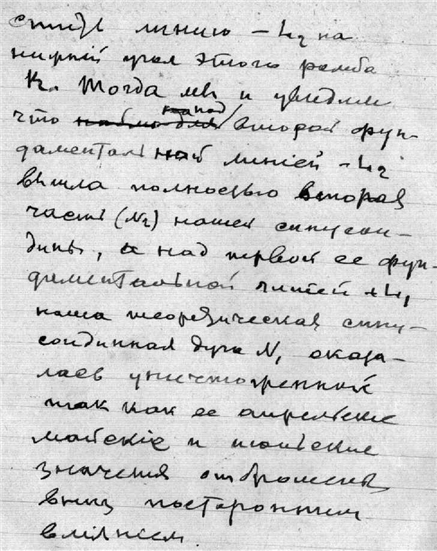 линию – L₂ на
нижний угол этого ромба
К. Тогда мы и увидим
что над второй фун-
даментальной линией – L₂
вышла полностью вторая
часть (N₂) нашей синусои-
диды, а над первой ее фун-
даментальной линией + L₁
наша теоретическая сину-
соидинная дуга N₁ оказа-
лась уничтоженной
так как ее апрельские
майскіе и июльские
значения отброшены
вниз посторонним
влиянiем.